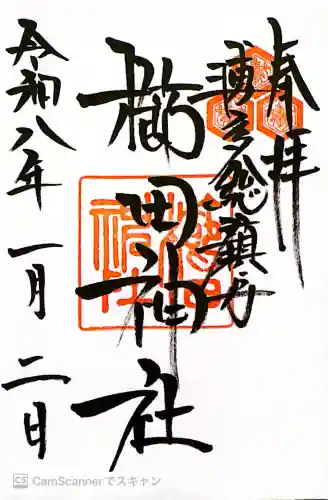 奉拝
博多総鎮守
櫛田神社
令和八年一月二日
CS CamScannerでスキャン